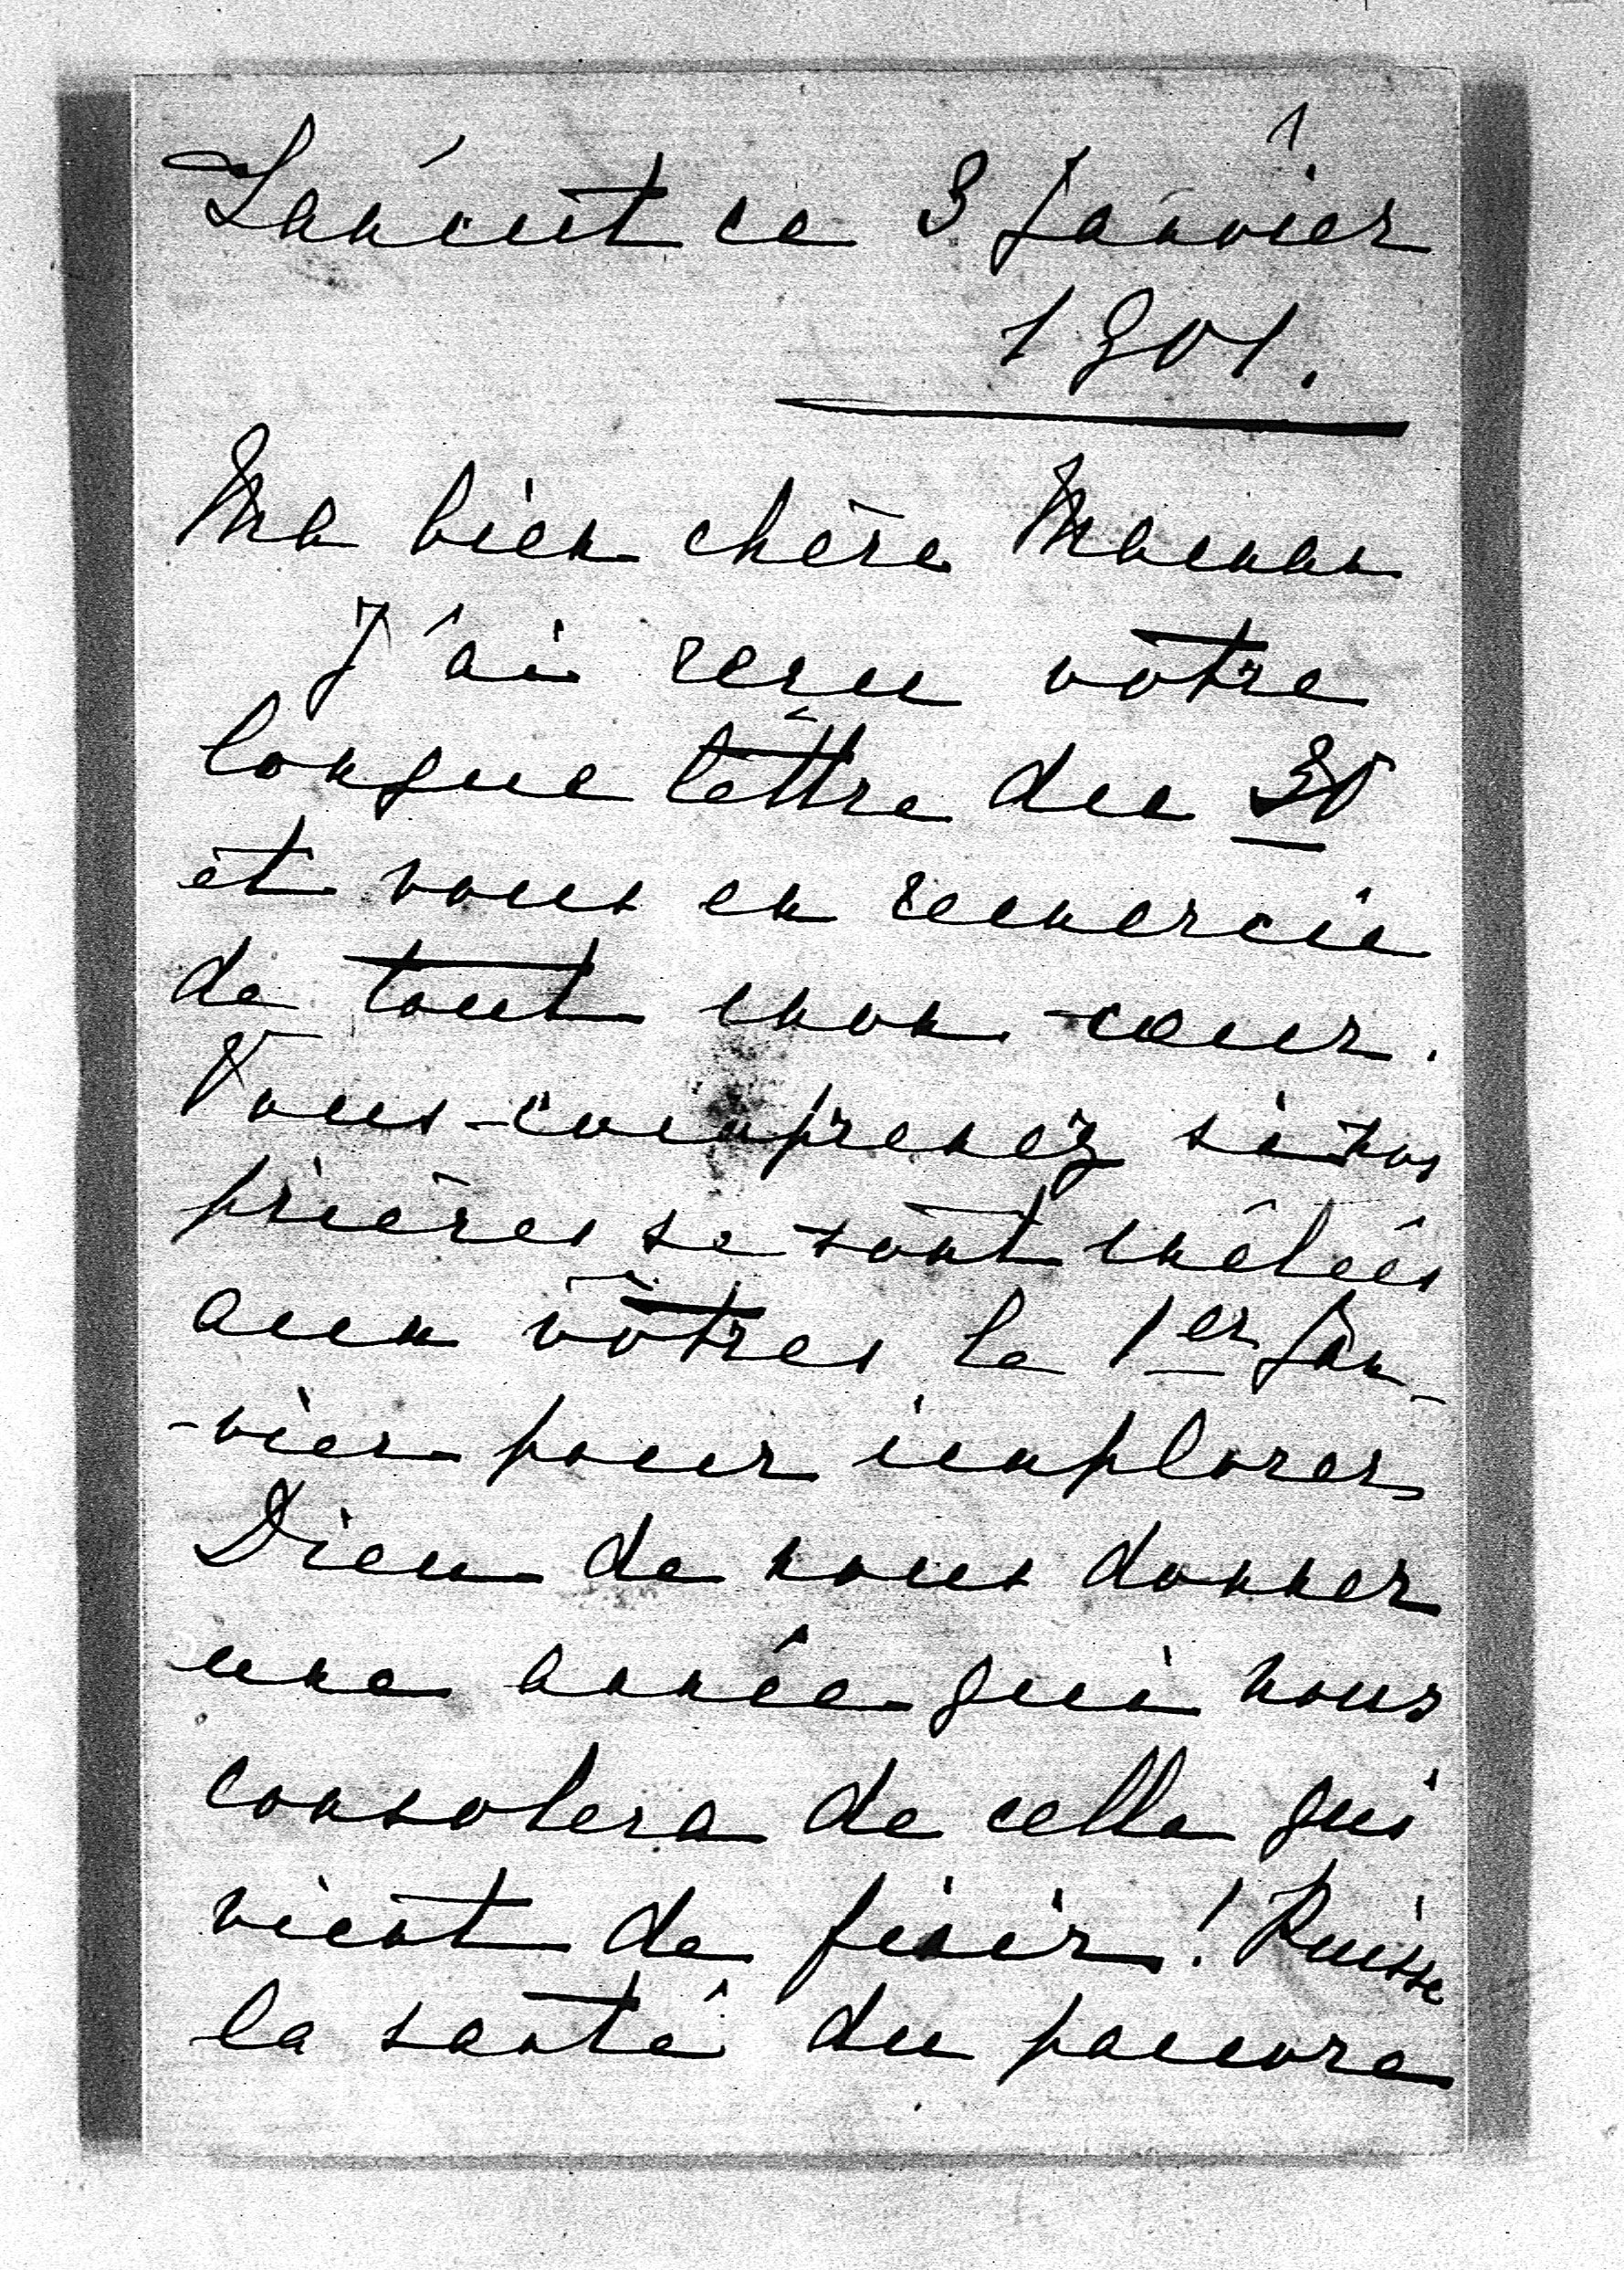 1.
Łańcut ce 3 Janvier
1901.
Ma bien chère Maman
J'ai reçu votre
longue lettre du 30
et vous en remercie
de tout mon cœur.
Vous comprenez si nos
prières se sont mêlées
aux vôtres le 1er Jan-
-vier pour implorer
Dieu de nous donner
une année qui nous
consolera de celle qui
vient de finir! Puisse
la santé du pauvre